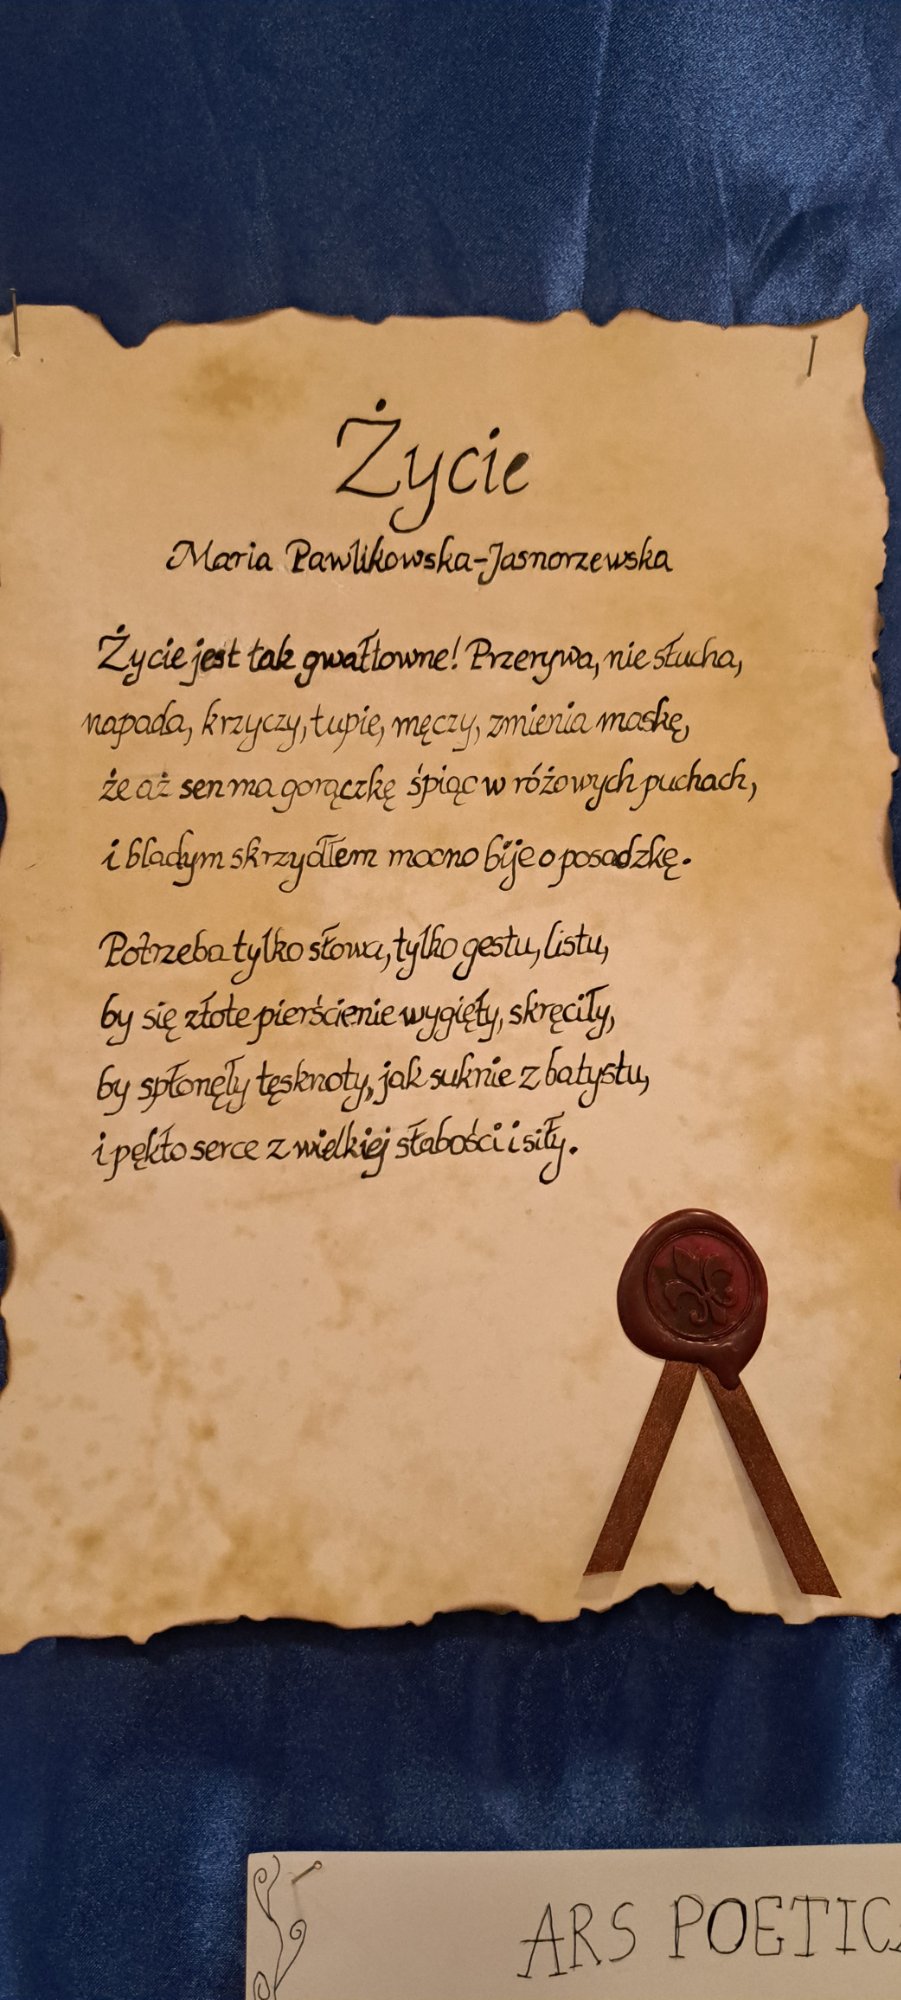 Życie
Maria Pawlikowska-Jasnorzewska
Życie jest tak gwałtowne! Przerywa, nie słucha,
napada, krzyczy, tupie, męczy, zmienia maskę,
że aż sen ma gorączkę śpiąc w różowych puchach,
i bladym skrzydłem mocno bije o posadzkę.
Potrzeba tylko słowa, tylko gestu, listu,
by się złote pierścienie wygięły, skręciły,
by spłonęły tęsknoty, jak suknie z batystu,
i pękło serce z wielkiej słabości i siły.
ARS POETICA